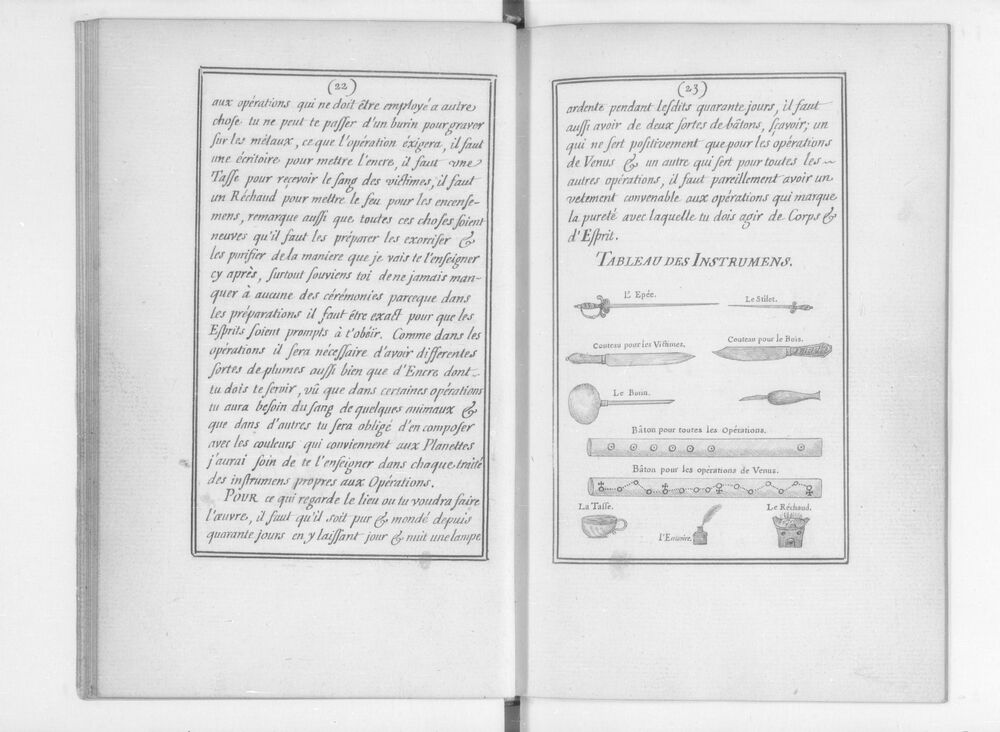 (22)
aux opérations qui ne doit être employé a autre
chose tu ne peut te passer d'un burin pour graver
sur les métaux, ce que l'opération éxigera, il faut
une écritoire pour mettre l'encre, il faut une
Tasse pour reçevoir le sang des victimes, il faut
un Réchaud pour mettre le feu pour les encense-
mens, remarque aussi que toutes ces choses soient
neuves qu'il faut les préparer les exorciser &
les purifier de la maniere que je vais te l'enseigner
cy après, surtout souviens toi de ne jamais man-
quer à aucune des cérémonies parceque dans
les préparations il faut être exact pour que les
Esprits soient prompts à t'obéir. Comme dans les
opérations il sera nécessaire d'avoir differentes
sortes de plumes aussi bien que d'Encre dont
tu dois te servir, vû que dans certaines opérations
tu aura besoin du sang de quelques animaux &
que dans d'autres tu sera obligé d'en composer
avec les couleurs qui conviennent aux Planettes
j'aurai soin de te l'enseigner dans chaque traité
des instrumens propres aux Opérations.
POUR ce qui regarde le lieu ou tu voudra faire
l'œuvre, il faut qu'il soit pur & mondé depuis
quarante jours en y laissant jour & nuit une lampe
(23)
ardente pendant lesdits quarante jours, il faut
aussi avoir de deux sortes de bâtons, sçavoir; un
qui ne sert positivement que pour les opérations
de Venus & un autre qui sert pour toutes les
autres opérations, il faut pareillement avoir un
vetement convenable aux opérations qui marque
la pureté avec laquelle tu dois agir de Corps &
d'Esprit.
TABLEAU DES INSTRUMENS.
L'Epée.
Le Stilet.
Couteau pour les Victimes.
Couteau pour le Bois.
Le Burin.
Bâton pour toutes les Opérations.
Bâton pour les opérations de Venus.
La Tasse.
l'Ecritoire.
Le Réchaud.